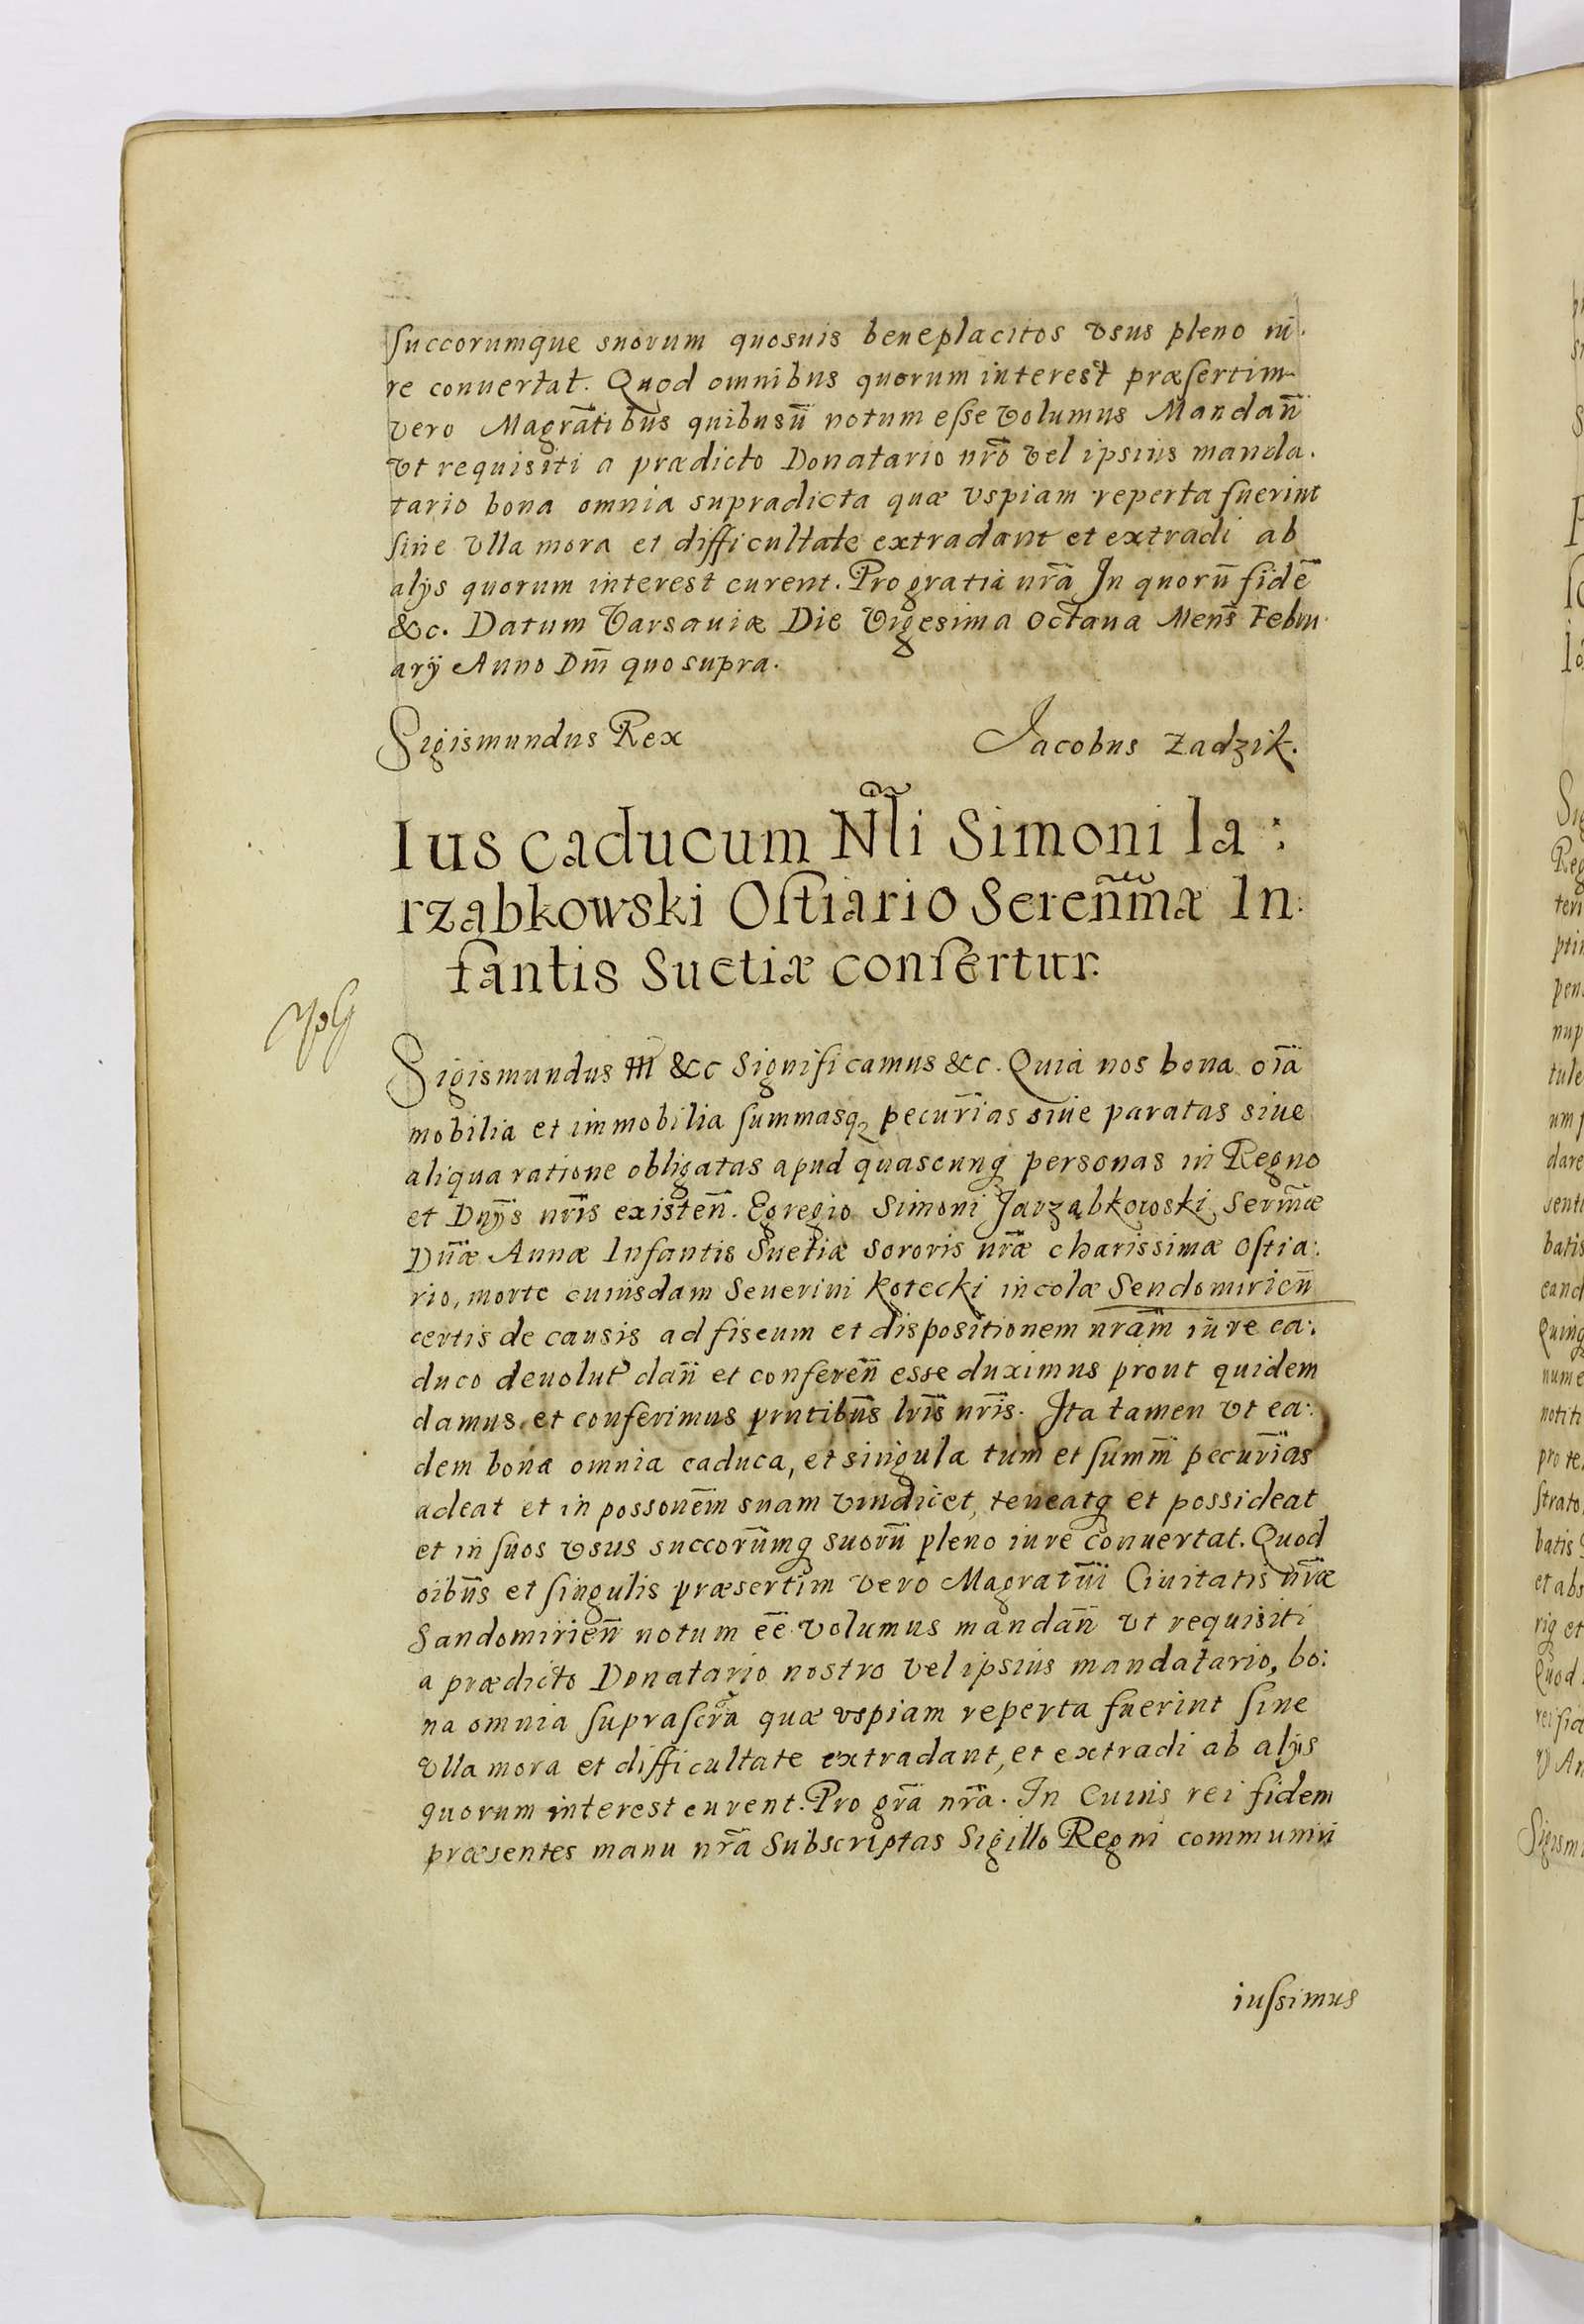 succorumque suorum quosuis beneplacitos vsus pleno iu.
re conuertat. Quod omnibus quorum interest præsertim
vero Magratibus quibusũ notum esse volumus Mandañ
vt requisiti a prædicto Donatario nrõ vel ipsius manda.
tario bona omnia supradicta quæ vspiam reperta fuerint
sine vlla mora et difficultate extradant et extradi ab
alys quorum interest curent. Pro gratia nrã In quorũ fidẽ
&c. Datum Varsauiæ Die Vigesima octaua Mens̃ Febru.
arÿ Anno Dm̃ quo supra.
Sigismundus Rex
Jacobus Zadzik.
Ius caducum Nli Simoni Ia:
rząbkowski Ostiario Sereñmæ In:
fantis Suetiæ confertur.
Sigismundus III &c Significamus &c. Quia nos bona oĩa
mobilia et immobilia summasq₃ pecuñias siue paratas siue
aliqua ratione obligatas apud quascunq₃ personas in Regno
et Dnÿs nrĩs existeñ. Egregio Simoni Jarząbkowski Serm̃æ
Dnæ̃ Annæ Infantis Suetiæ sororis nræ̃ charissimæ ostia:
rio, morte cuiusdam Seuerini Kotecki incolæ Sendomirień
certis de causis ad fiscum et dispositionem nrãm iure ca:
duco deuolut dañ et confereñ esse duximus prout quidem
damus et conferimus prntibus̃ lrĩs nrĩs. Ita tamen vt ea:
dem bona omnia caduca, et singula tum et summ̃ pecuñias
adeat et in possonem̃ suam vindicet, teneatq₃ et possideat
et in suos vsus succorũmq₃ suorũ pleno iure conuertat. Quod
oibus̃ et singulis præsertim vero Magratũi Ciuitatis nræ̃
Sandomirieñ notum eẽ volumus mandañ vt requisiti
a prædicto Donatario nostro vel ipsius mandatario, bo:
na omnia suprascrã quæ vspiam reperta fuerint sine
vlla mora et difficultate extradant, et extradi ab alÿs
quorum interest curent. Pro grã nrã. In Cuius rei fidem
præsentes manu nrã Subscriptas Sigillo Regni communiri
iussimus